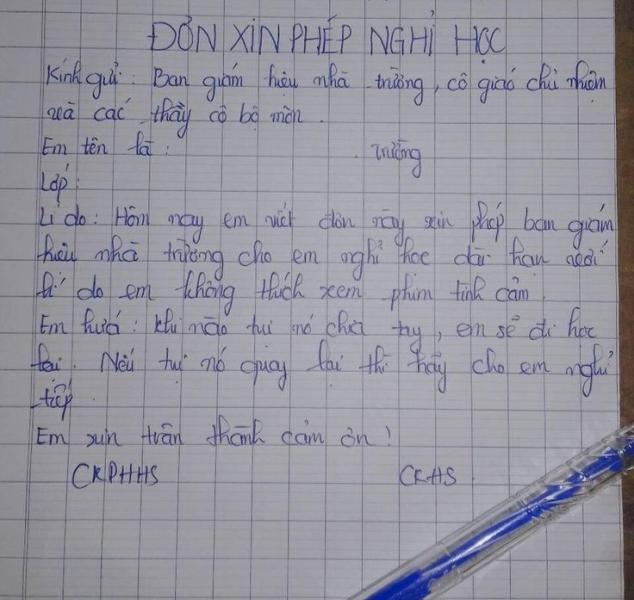 ĐƠN XIN PHÉP NGHỈ HỌC
Kính gửi: Ban giám hiệu nhà trường, cô giáo chủ nhiệm
và các thầy cô bộ môn.
Em tên là: trường
Lớp:
Lí do: Hôm nay em viết đơn này xin phép ban giám
hiệu nhà trường cho em nghỉ học dài hạn với
lí do em không thích xem phim tình cảm.
Em hứa: khi nào tụi nó chia tay, em sẽ đi học
lại. Nếu tụi nó quay lại thì hãy cho em nghỉ
tiếp.
Em xin trân thành cảm ơn!
CKPHHS CKHS